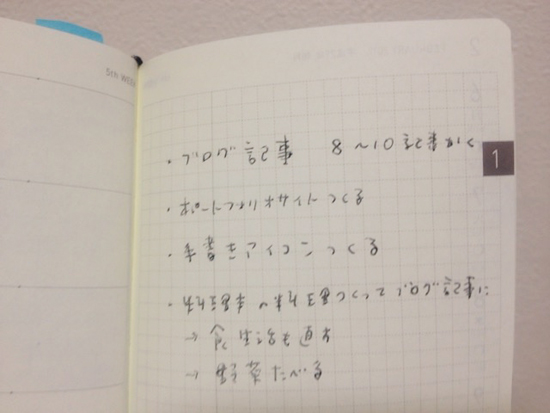 5th WEE
1
・ブログ記事 8〜10記事かく
・ポートフォリオサイトつくる
・手書きアイコンつくる
・つくってブログ記事に
→ 食生活を直す
→ 野菜たべる